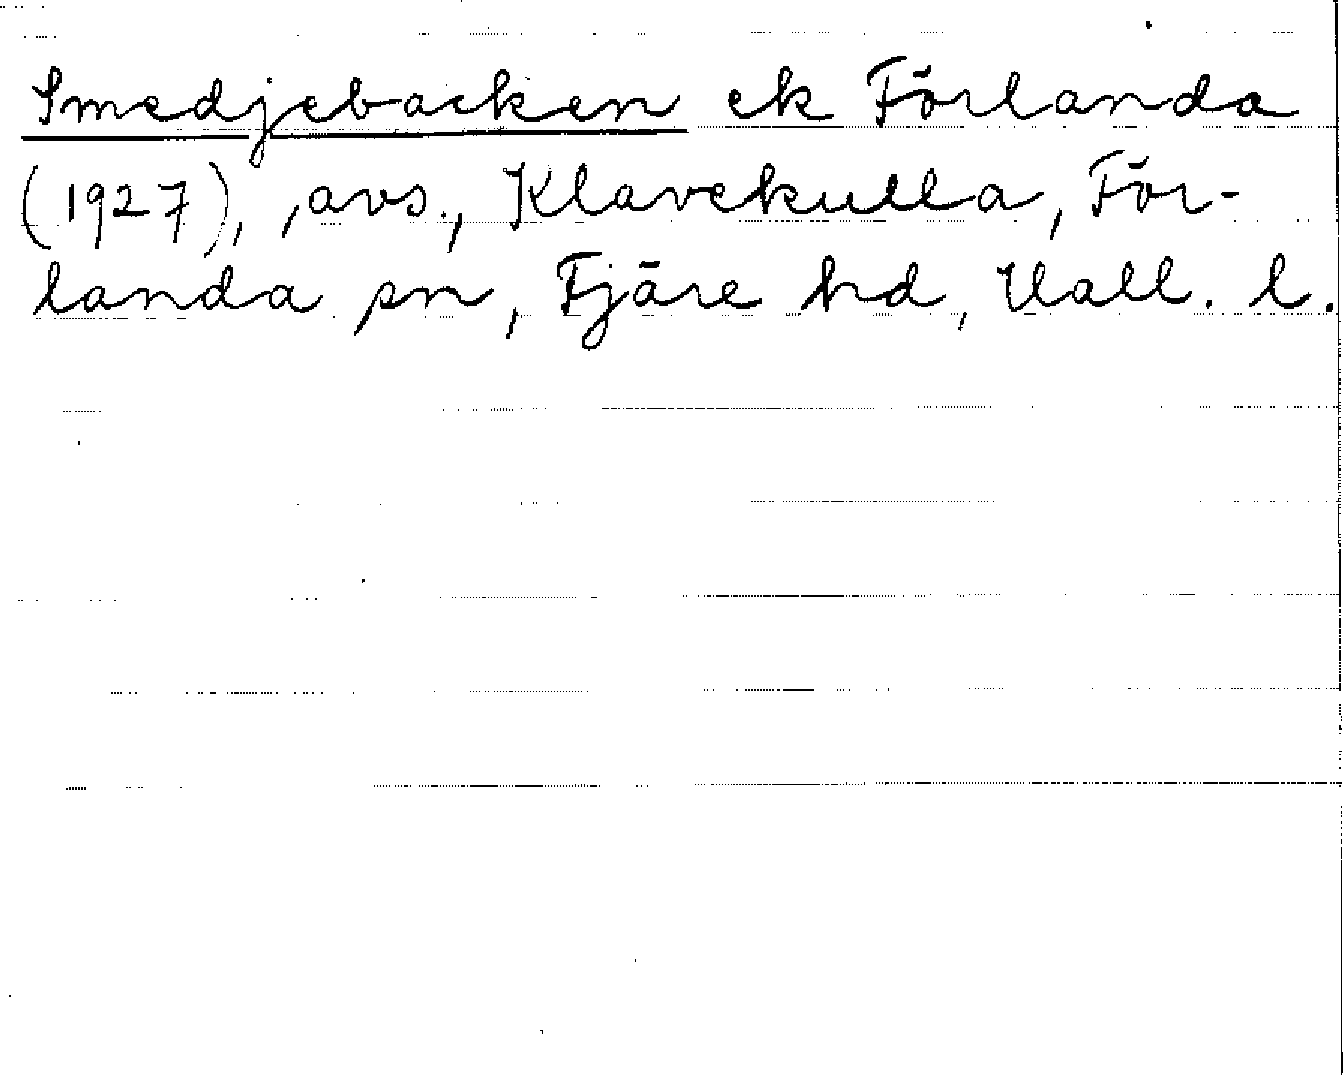 Smedjebacken ek Förlanda
(1927), ,avs., Klavekulla, För-
landa sn, Fjäre hd, Hall. l.